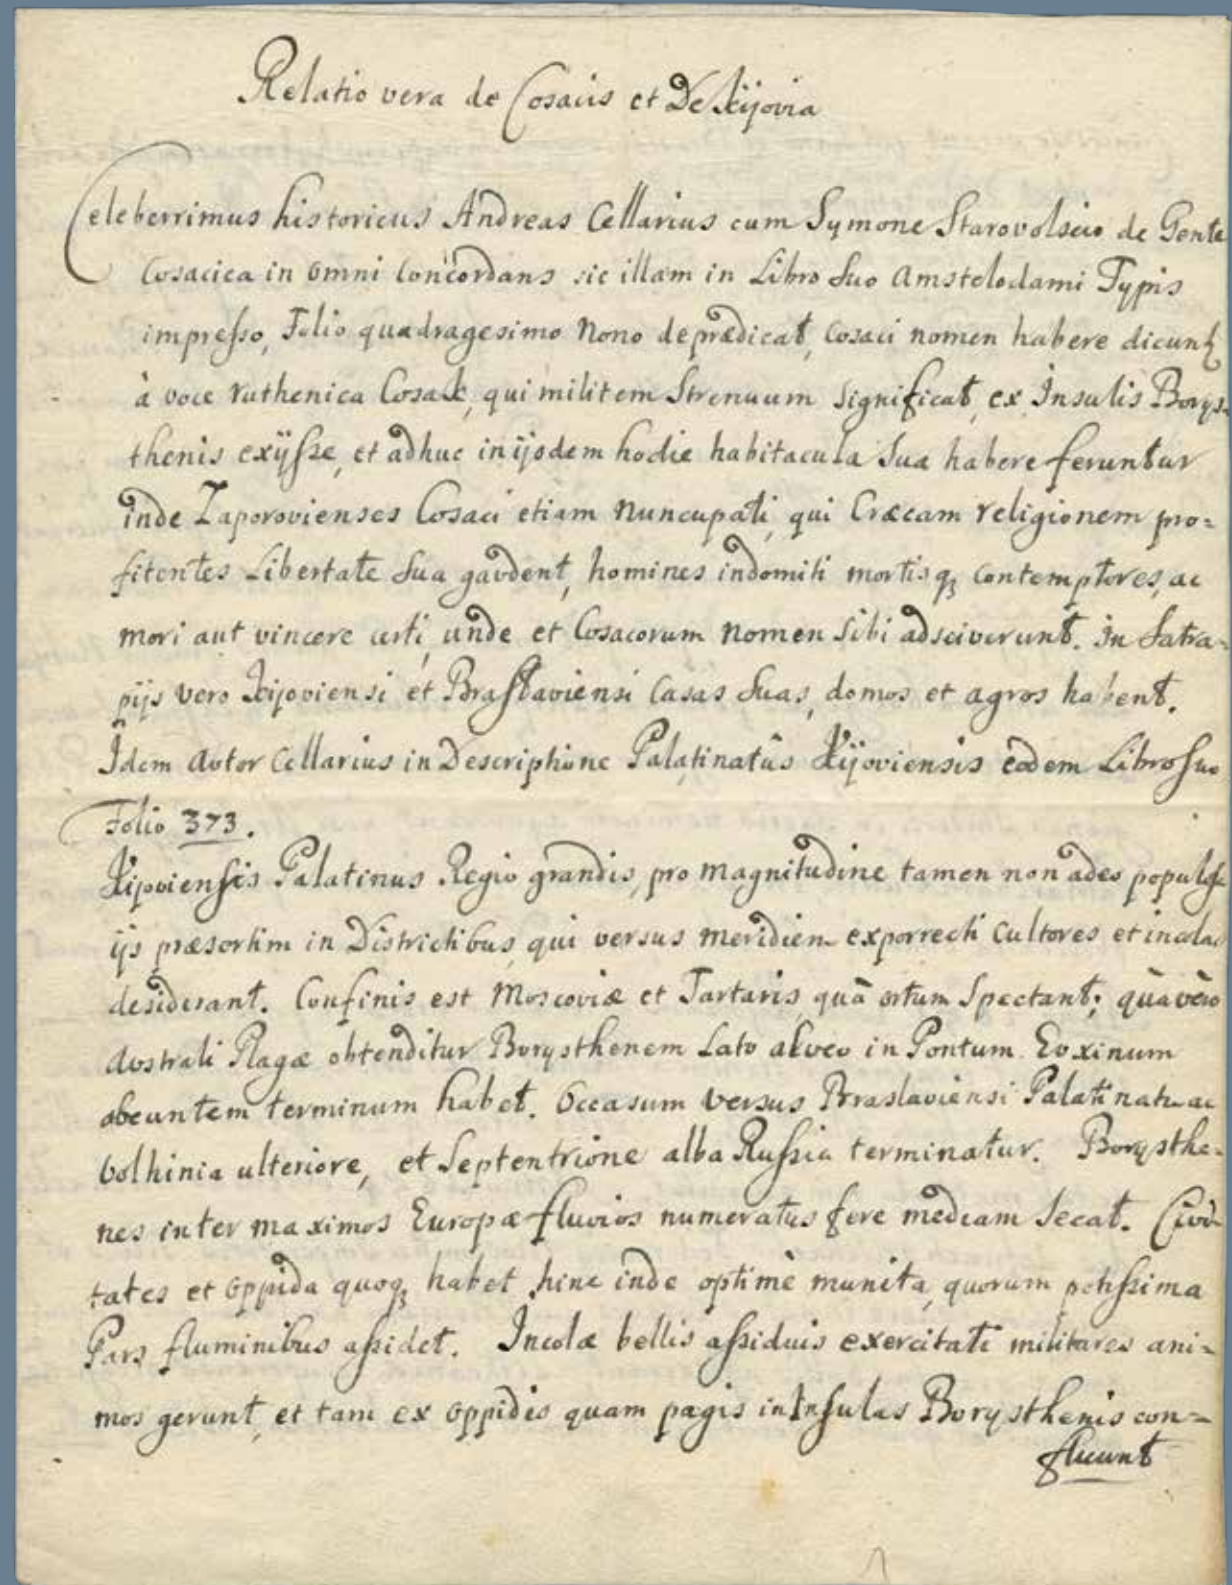 Relatio vera de Cosacis et De Kijovia
Celeberrimus historicus Andreas Cellarius cum Symone Starovolscio de Gente
Cosacica in omni concordans sic illam in Libro suo Amstelodami Typis
impresso, Folio quadragesimo Nono deprædicat, Cosaci nomen habere dicunt
à voce ruthenica Cosak, qui militem Strenuum significat, ex Insulis Borys-
thenis exijsse, et adhuc in ijsdem hodie habitacula sua habere feruntur
inde Zaporovienses Cosaci etiam nuncupati, qui Græcam religionem pro=
fitentes Libertate sua gaudent, homines indomiti mortisq; contemptores, ac
mori aut vincere certi, unde et Cosacorum nomen sibi adsciverunt. in Satra-
pijs vero Kijoviensi et Braslaviensi Casas suas, domos et agros habent.
Idem Autor Cellarius in Descriptione Palatinatûs Kijoviensis eodem Libro suo
Folio 373.
Kijoviensis Palatinus Regio grandis, pro magnitudine tamen non adeo
ijs præsertim in Districtibus, qui versus meridiem exporrecti cultores et incolas
desiderant. Confinis est Moscoviæ et Tartaris, quà ortum Spectant; quà vero
Australi Plagæ obtenditur Borysthenem Lato alveo in Pontum Euxinum
abeuntem terminum habet. Occasum versus Braslaviensi Palatinatu ac
Volhinia ulteriore, et Septentrione alba Russia terminatur. Borysthe-
nes inter maximos Europæ fluvios numeratus fere mediam secat. Civi-
tates et oppida quoq; habet hinc inde optimè munita, quorum potissima
Pars fluminibus assidet. Incolæ bellis assiduis exercitati militares ani-
mos gerunt, et tam ex oppidis quam pagis in Insulas Borysthenis con-
fluunt